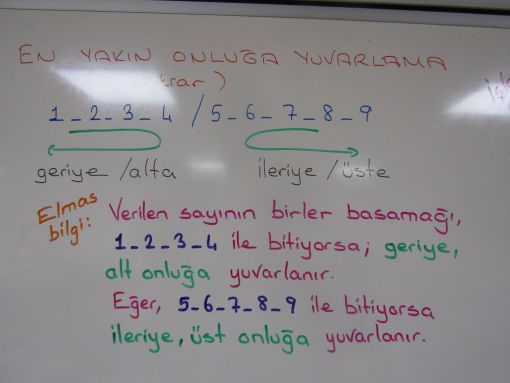 EN YAKIN ONLUĞA YUVARLAMA
(tekrar)
1_2_3_4 / 5_6_7_8_9
geriye /alta ileriye / üste
Elmas bilgi: Verilen sayının birler basamağı,
1_2_3_4 ile bitiyorsa; geriye,
alt onluğa yuvarlanır.
Eğer, 5_6_7_8_9 ile bitiyorsa
ileriye, üst onluğa yuvarlanır.